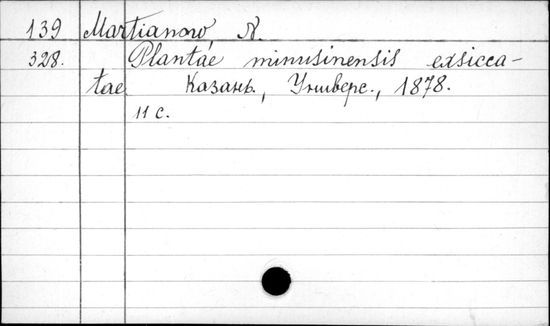 139 Martianow, N.
328. Plantae minusinensis exsicca-
tae Казань, Универс., 1878.
11 с.